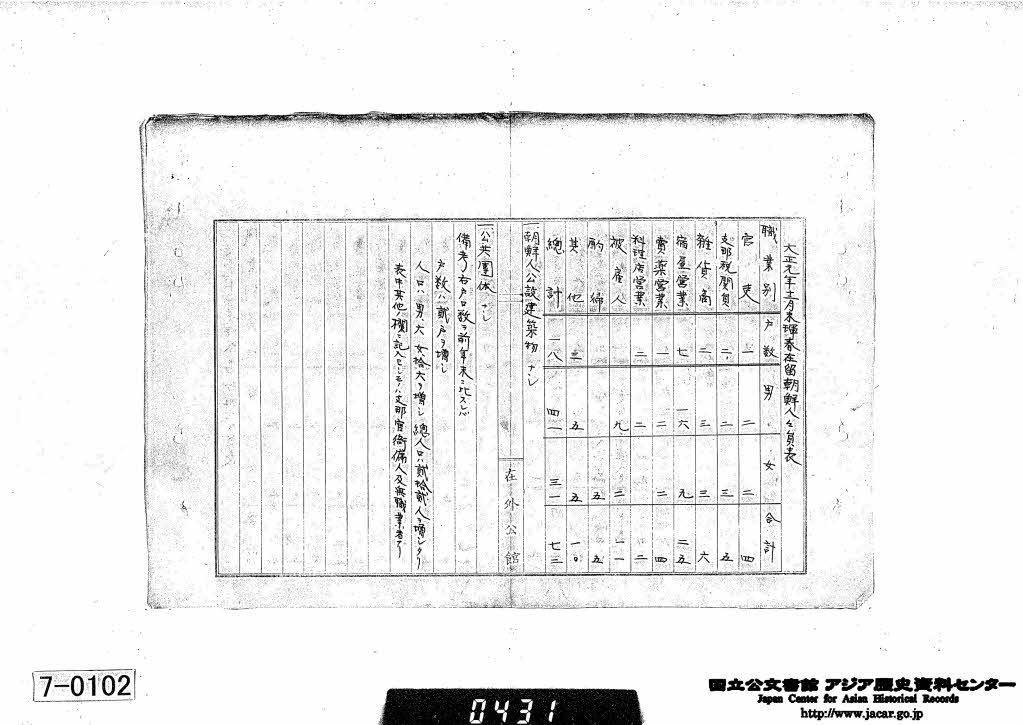 大正元年十二月末琿春在留朝鮮人々員表
職業別 戸数 男 女 合計
官吏 一 二 二 四
支那税関員 二 二 三 五
雜貨商 二 三 三 六
宿屋營業 七 一六 九 二五
賣薬營業 一 二 二 四
料理店營業 二 二 二
被雇人 九 二 一一
酌婦 五 五
其他 三 五 五 一〇
總計 一八 四一 三一 七二
一、朝鮮人公設建築物 ナシ
在外公館
一、公共團体 ナシ
備考 右戸口数ヲ前年末ニ比スレバ
戸数ハ貳戸ヲ增シ
人口ハ男、六 女、拾六ヲ增シ 總人口ハ貳拾貳人ヲ增シタリ
表中其他ノ欄ニ記入セシモノハ支那官衙傭人及無職業者ナリ
7-0102
0431
国立公文書館 アジア歴史資料センター
Japan Center for Asian Historical Records
http://www.jacar.go.jp